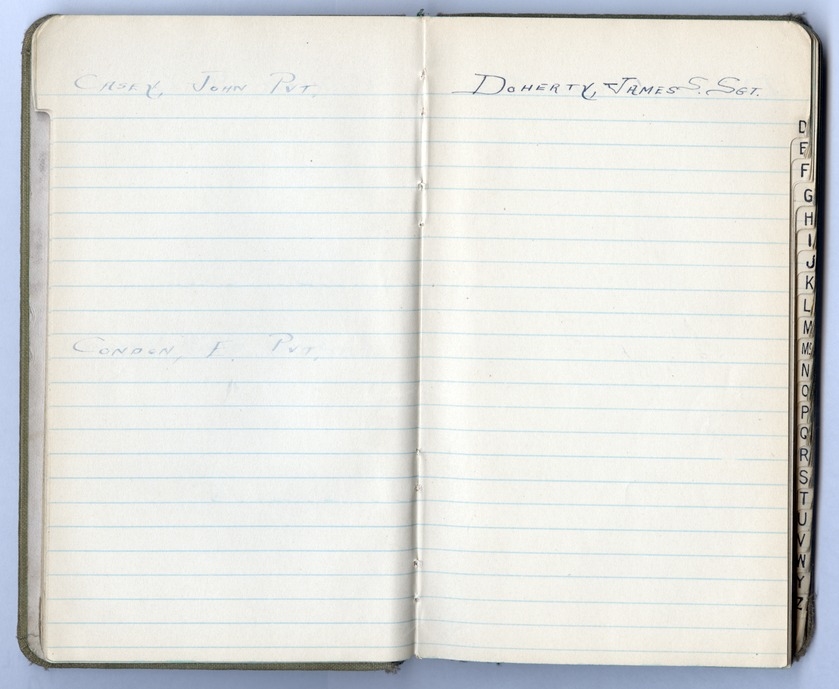 CASEY, JOHN PVT.
CONDON, F. PVT.
DOHERTY, JAMES S. SGT.
D
E
F
G
H
I
J
K
L
M
Mc
N
O
P
Q
R
S
T
U
V
W
Y
Z